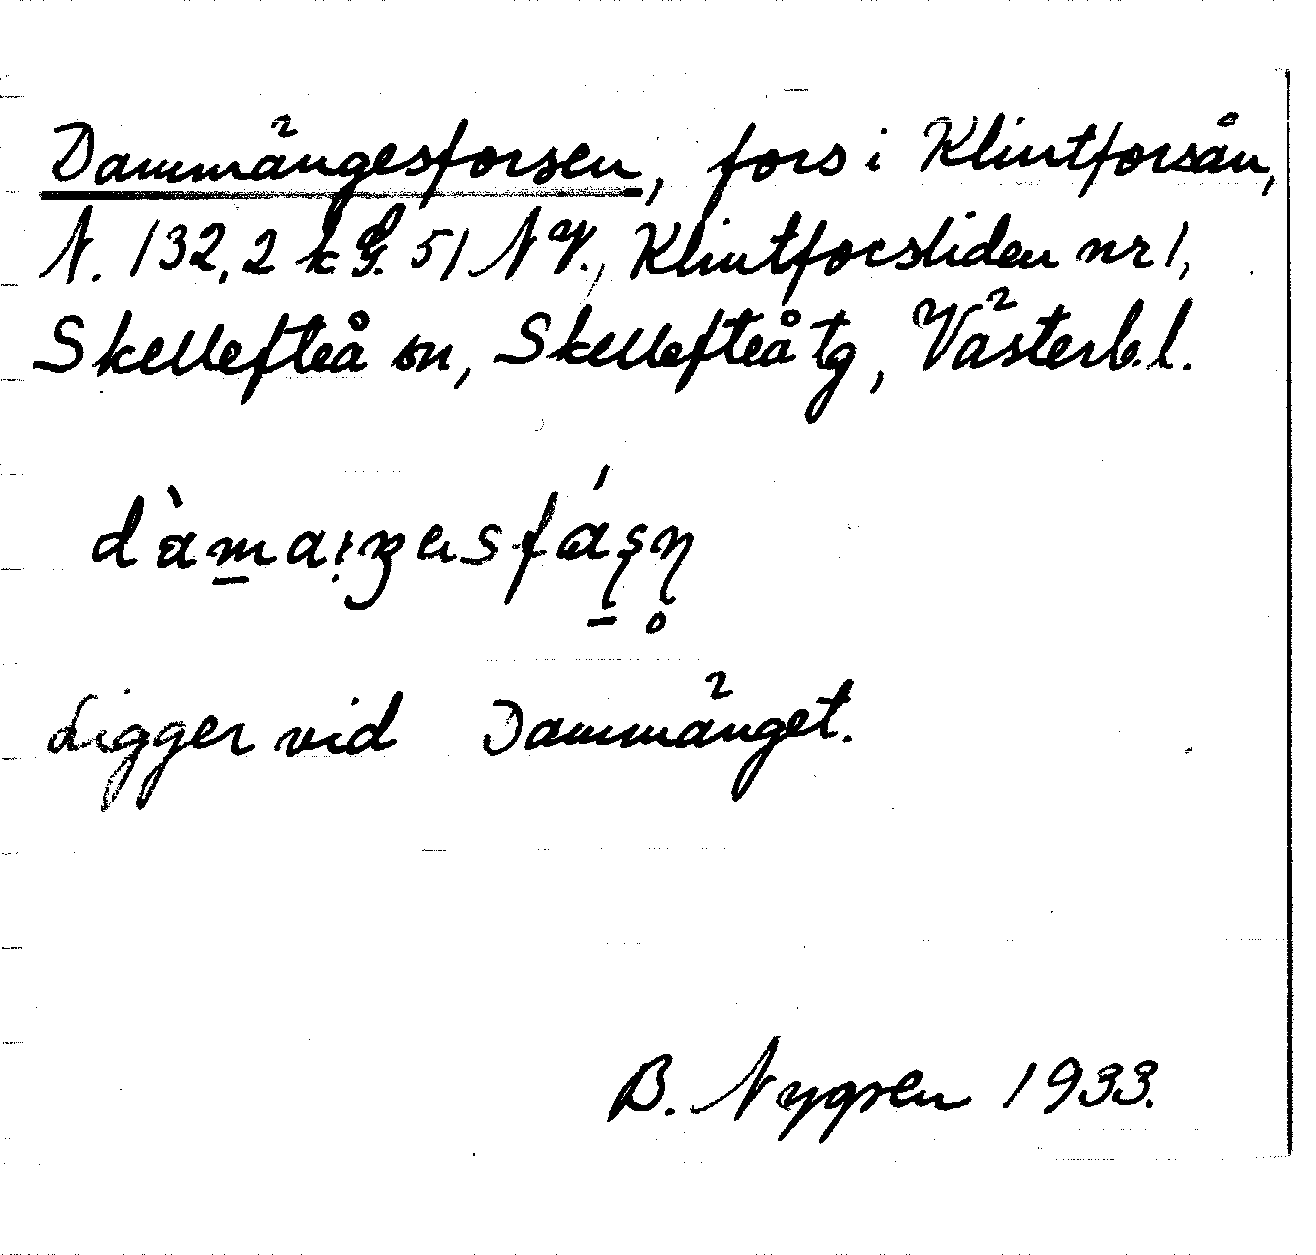 Dammängesforsen, fors i Klintforsån,
N. 132,2 k G. 51 NV., Klintforsliden nr 1,
Skellefteå sn, Skellefteå tg, Västerb. l.
Ligger vid Dammänget.
B. Nygren 1933.